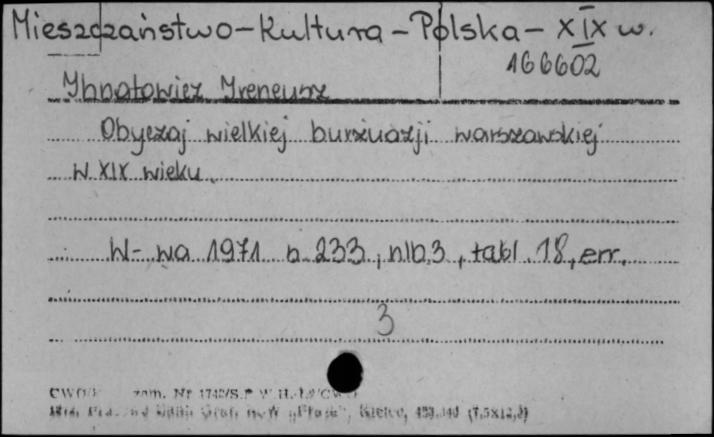 Mieszczaństwo - Kultura - Polska - XIX w.
166602
Ihnatowicz Ireneusz
Obyczaj wielkiej burżuazji warszawskiej
w XIX wieku.
W-wa 1971 s. 233, nlb. 3, tabl. 18, err.
3
zam. Nr